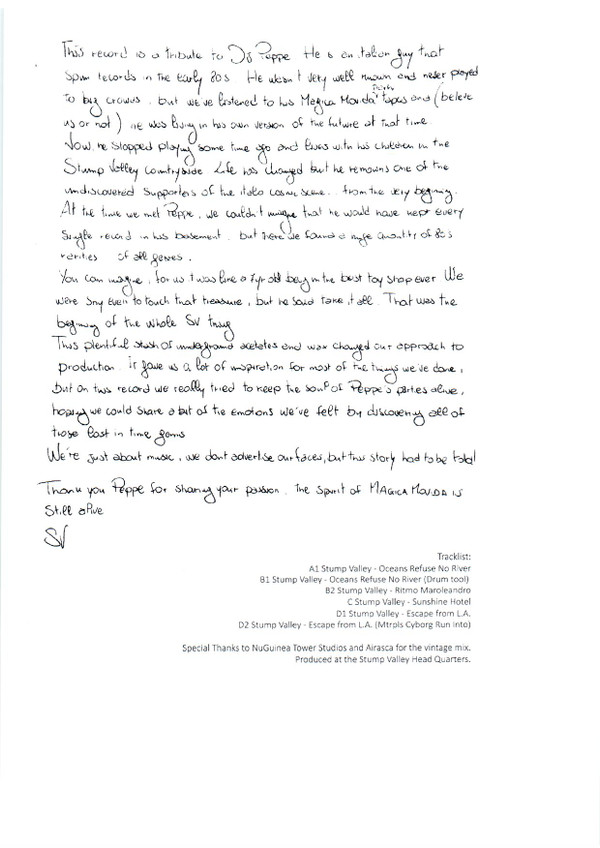 This record is a tribute to Dj Peppe He is an italian guy that
spun records in the early 80s He wasn't very well known and never played
to big crowds, but we've listened to his "Magica Movida" party tapes and (belive
us or not) he was living in his own version of the future at that time.
Now, he stopped playing some time ago and lives with his children in the
Stump Valley countryside Life has changed but he remains one of the
undiscovered supporters of the italo cosmic scene, from the very beginning.
At the time we met Peppe, we couldn't imagine that he would have kept every
single record in his basement, but here we found a huge quantity of 80's
rarities of all genres.
You can imagine, for us it was like a 7yr old boy in the best toy shop ever We
were shy even to touch that treasure, but he said take it all. That was the
beginning of the whole SV thing
This plentiful stash of underground acetates and wax changed our approach to
production. It gave us a lot of inspiration for most of the things we've done,
but on this record we really tried to keep the soul of Peppe's parties alive,
hoping we could share a bit of the emotions we've felt by discovering all of
those lost in time gems
We're just about music, we dont advertise our faces, but this story had to be told
Thank you Peppe for sharing your passion. The spirit of MAGICA MOVIDA is
still alive
SV
Tracklist:
A1 Stump Valley - Oceans Refuse No River
B1 Stump Valley - Oceans Refuse No River (Drum tool)
B2 Stump Valley - Ritmo Maroleandro
C Stump Valley - Sunshine Hotel
D1 Stump Valley - Escape from L.A.
D2 Stump Valley - Escape from L.A. (Mtrpls Cyborg Run Into)
Special Thanks to NuGuinea Tower Studios and Airasca for the vintage mix.
Produced at the Stump Valley Head Quarters.